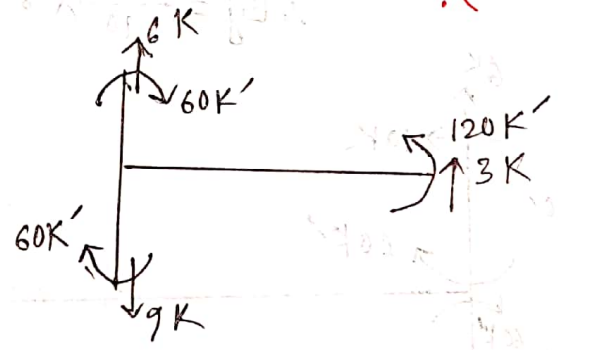 6 K
60K′
120 K′
3 K
60K′
9K